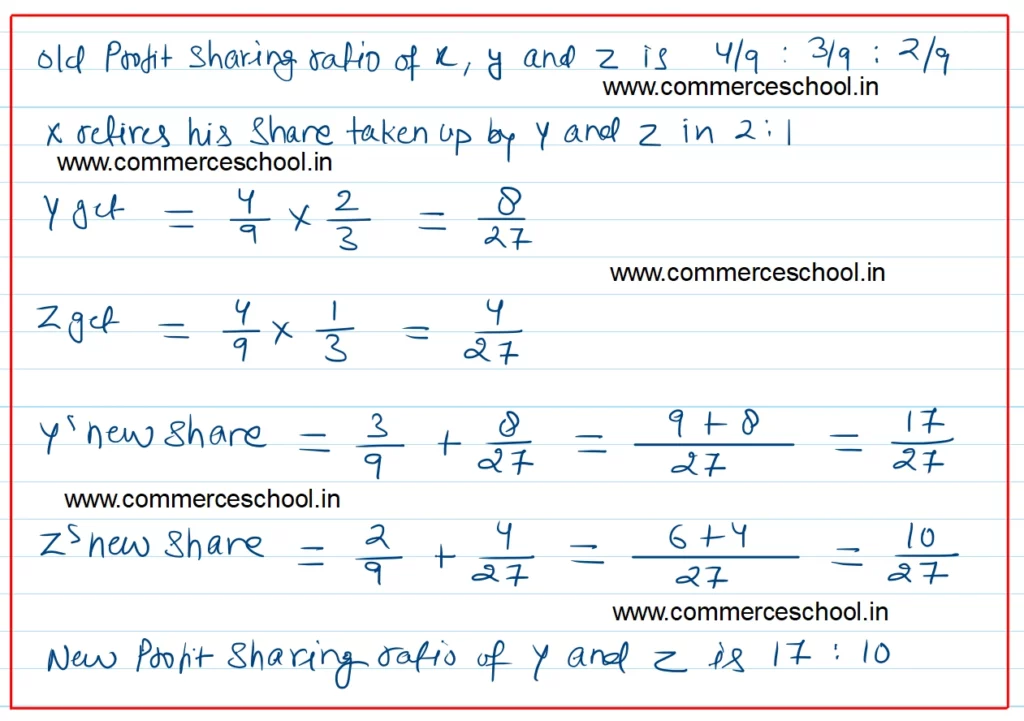 old Profit sharing ratio of x, y and z is 4/9 : 3/9 : 2/9
www.commerceschool.in
x retires his share taken up by y and z in 2:1
www.commerceschool.in
Y get = 4/9 × 2/3 = 8/27
www.commerceschool.in
Z get = 4/9 × 1/3 = 4/27
Y's new share = 3/9 + 8/27 = 9+8/27 = 17/27
www.commerceschool.in
Z's new share = 2/9 + 4/27 = 6+4/27 = 10/27
www.commerceschool.in
New Profit sharing ratio of Y and z is 17 : 10